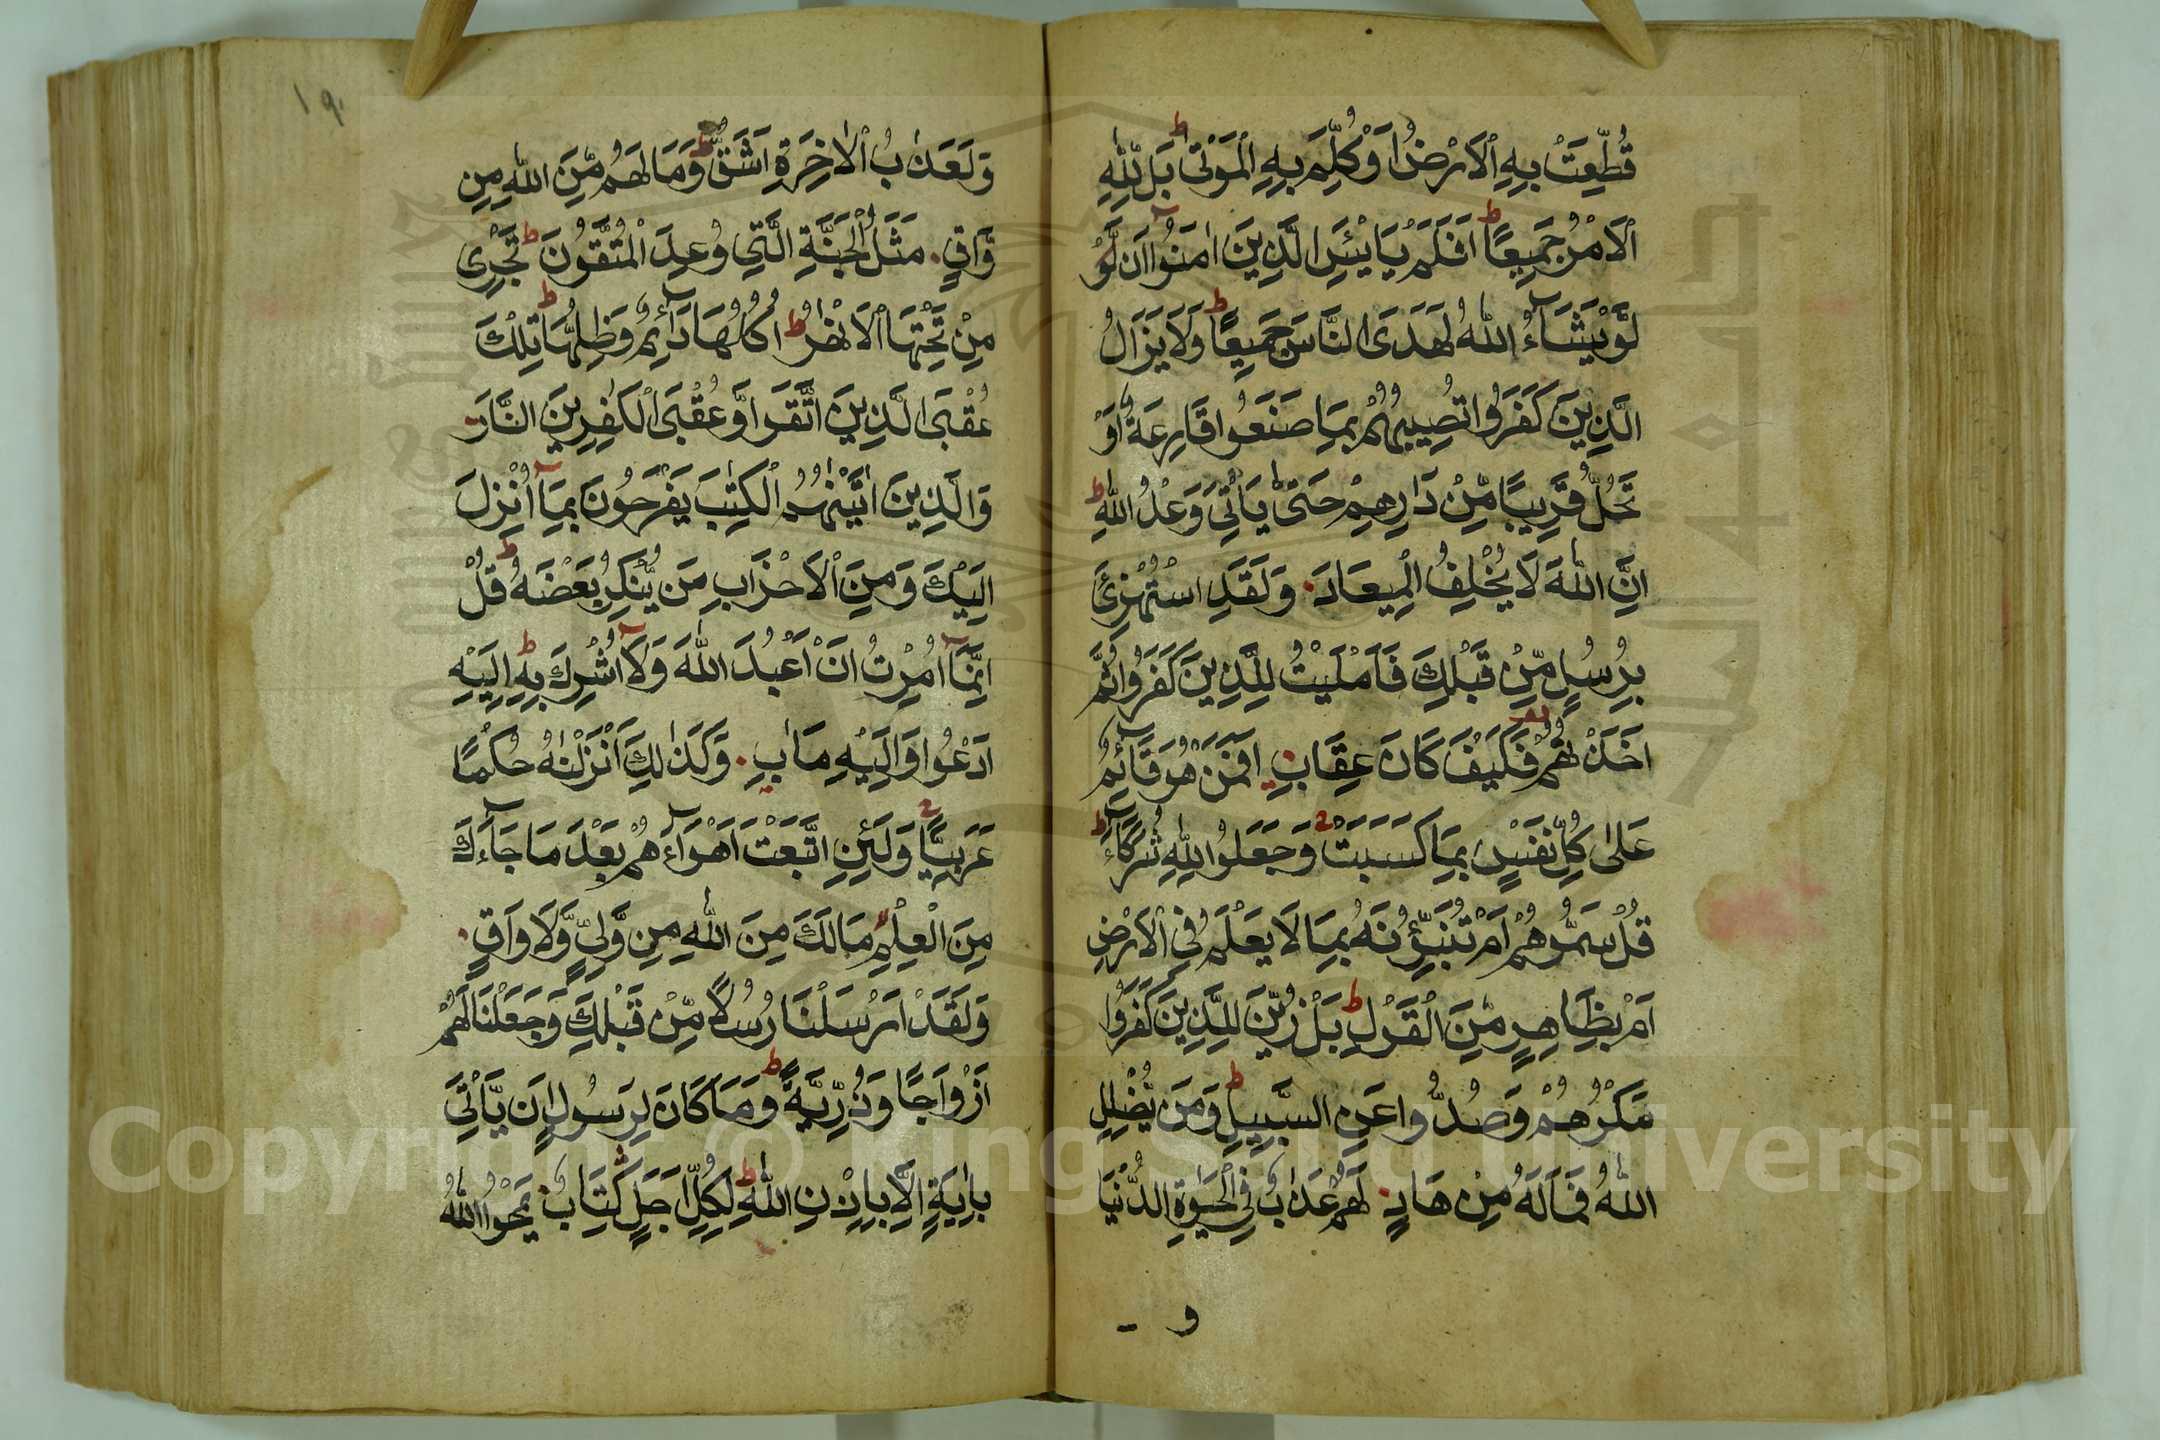 قُطِّعَتْ بِهِ ٱلْاَرْضُ اَوْ كُلِّمَ بِهِ ٱلْمَوْتٰى بَلْ لِلّٰهِ
ٱلْاَمْرُ جَمِيعًا ط اَفَلَمْ يَايْـَٔسِ الَّذِينَ اٰمَنُوٓا اَن لَّوْ
لَوْ يَشَآءُ اللّٰهُ لَهَدَى النَّاسَ جَمِيعًا ط وَلَا يَزَالُ
الَّذِينَ كَفَرُوا تُصِيبُهُمْ بِمَا صَنَعُوا قَارِعَةٌ اَوْ
تَحُلُّ قَرِيبًا مِّنْ دَارِهِمْ حَتّٰى يَأْتِيَ وَعْدُ اللّٰهِ ط
اِنَّ اللّٰهَ لَا يُخْلِفُ الْمِيعَادَ ۰ وَلَقَدِ اسْتُهْزِئَ
بِرُسُلٍ مِّنْ قَبْلِكَ فَاَمْلَيْتُ لِلَّذِينَ كَفَرُوا ثُمَّ
اَخَذْتُهُمْ فَكَيْفَ كَانَ عِقَابِ ۰ اَفَمَنْ هُوَ قَآئِمٌ
عَلٰى كُلِّ نَفْسٍ بِمَا كَسَبَتْ وَجَعَلُوا لِلّٰهِ شُرَكَآءَ ط
قُلْ سَمُّوهُمْ اَمْ تُنَبِّؤُنَهُ بِمَا لَا يَعْلَمُ فِى ٱلْاَرْضِ
اَمْ بِظَاهِرٍ مِّنَ الْقَوْلِ ط بَلْ زُيِّنَ لِلَّذِينَ كَفَرُوا
مَكْرُهُمْ وَصُدُّوا عَنِ السَّبِيلِ ط وَمَن يُّضْلِلِ
اللّٰهُ فَمَا لَهُ مِنْ هَادٍ ۰ لَهُمْ عَذَابٌ فِى الْحَيٰوةِ الدُّنْيَا
و
١٩٠
وَلَعَذَابُ ٱلْاٰخِرَةِ اَشَقُّ ط وَمَا لَهُمْ مِّنَ اللّٰهِ مِن
وَّاقٍ ۰ مَثَلُ الْجَنَّةِ الَّتِى وُعِدَ الْمُتَّقُونَ ط تَجْرِى
مِنْ تَحْتِهَا ٱلْاَنْهٰرُ ط اُكُلُهَا دَآئِمٌ وَظِلُّهَا ط تِلْكَ
عُقْبَى الَّذِينَ اتَّقَوا وَّعُقْبَى الْكٰفِرِينَ النَّارُ ۰
وَالَّذِينَ اٰتَيْنٰهُمُ الْكِتٰبَ يَفْرَحُونَ بِمَآ اُنْزِلَ
اِلَيْكَ وَمِنَ ٱلْاَحْزَابِ مَن يُّنْكِرُ بَعْضَهُ ط قُلْ
اِنَّمَآ اُمِرْتُ اَنْ اَعْبُدَ اللّٰهَ وَلَآ اُشْرِكَ بِهِ ط اِلَيْهِ
اَدْعُوا وَاِلَيْهِ مَاٰبِ ۰ وَكَذٰلِكَ اَنْزَلْنٰهُ حُكْمًا
عَرَبِيًّا وَلَئِنِ اتَّبَعْتَ اَهْوَآءَهُمْ بَعْدَ مَا جَآءَكَ
مِنَ الْعِلْمِ مَا لَكَ مِنَ اللّٰهِ مِن وَّلِيٍّ وَّلَا وَاقٍ ۰
وَلَقَدْ اَرْسَلْنَا رُسُلًا مِّنْ قَبْلِكَ وَجَعَلْنَا لَهُمْ
اَزْوَاجًا وَذُرِّيَّةً ط وَمَا كَانَ لِرَسُولٍ اَن يَّأْتِىَ
بِاٰيَةٍ اِلَّا بِاِذْنِ اللّٰهِ ط لِكُلِّ اَجَلٍ كِتَابٌ ۰ يَمْحُوا اللّٰهُ
Copyright © King Saud University